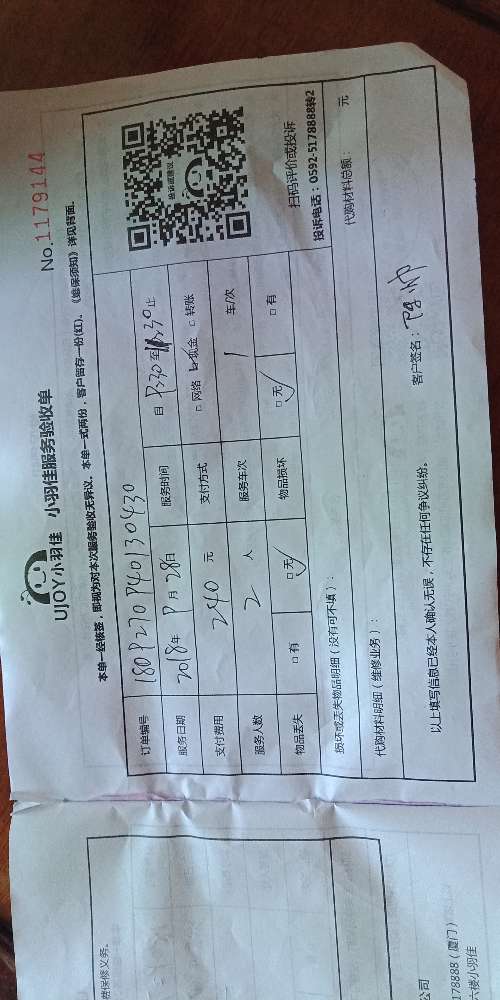 UJOY小羽佳 小羽佳服务验收单
No.1179144
本单一经核签，即视为对本次服务验收无异议。本单一式两份，客户留存一份(红)。《维保须知》详见背面。
订单编号 1809270940130430
服务日期 2018年9月28日 服务时间 自 9:30 至 11:30 止
支付费用 240 元 支付方式 □网络 ☑现金 □转账
服务人数 2 人 服务车次 1 车/次
物品丢失 □有 ☑无 物品损坏 ☑无 □有
投诉或建议
扫码评价或投诉
投诉电话：0592-5178888转2
损坏或丢失物品明细（没有可不填）：
代购材料明细（维修业务）：
代购材料总额： 元
以上填写信息已经本人确认无误，不存在任何争议纠纷。
客户签名：
维保修义务。
公司
178888（厦门）
六楼小羽佳